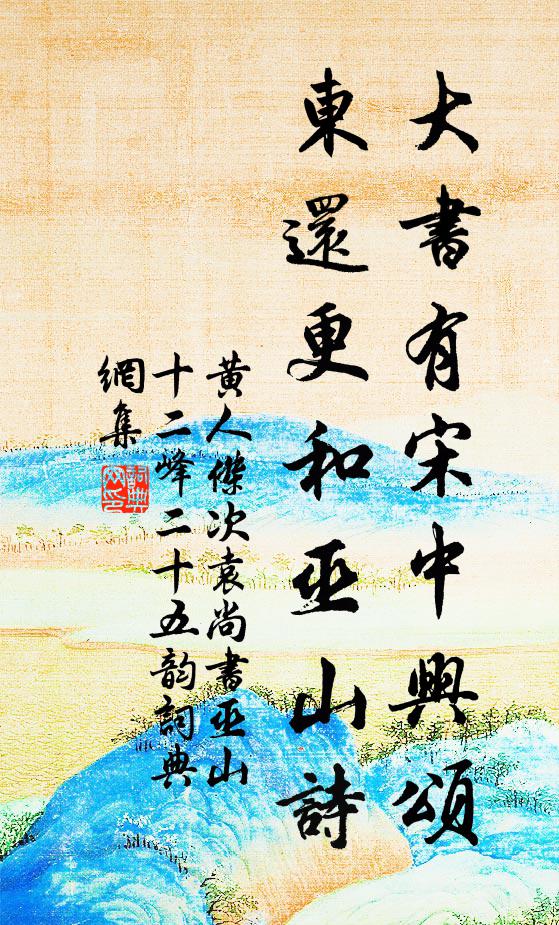 大書有宋中興頌
東還更和巫山詩
黃人傑次袁尚書巫山
十二峰二十五韵詞典
網集